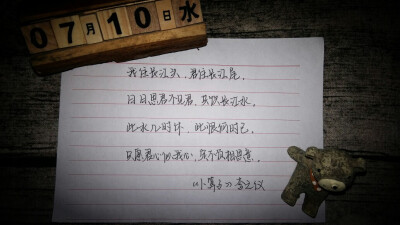 07月10日水
我住长江头，君住长江尾。
日日思君不见君，共饮长江水。
此水几时休，此恨何时已。
只愿君心似我心，定不负相思意。
《卜算子》李之仪